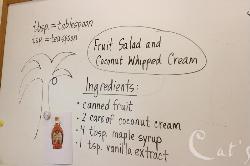 tbsp. = tablespoon
tsp. = teaspoon
Fruit Salad and
Coconut Whipped Cream
Ingredients:
• canned fruit
• 2 cans of coconut cream
• 4 tbsp. maple syrup
• 1 tsp. vanilla extract
Cat's